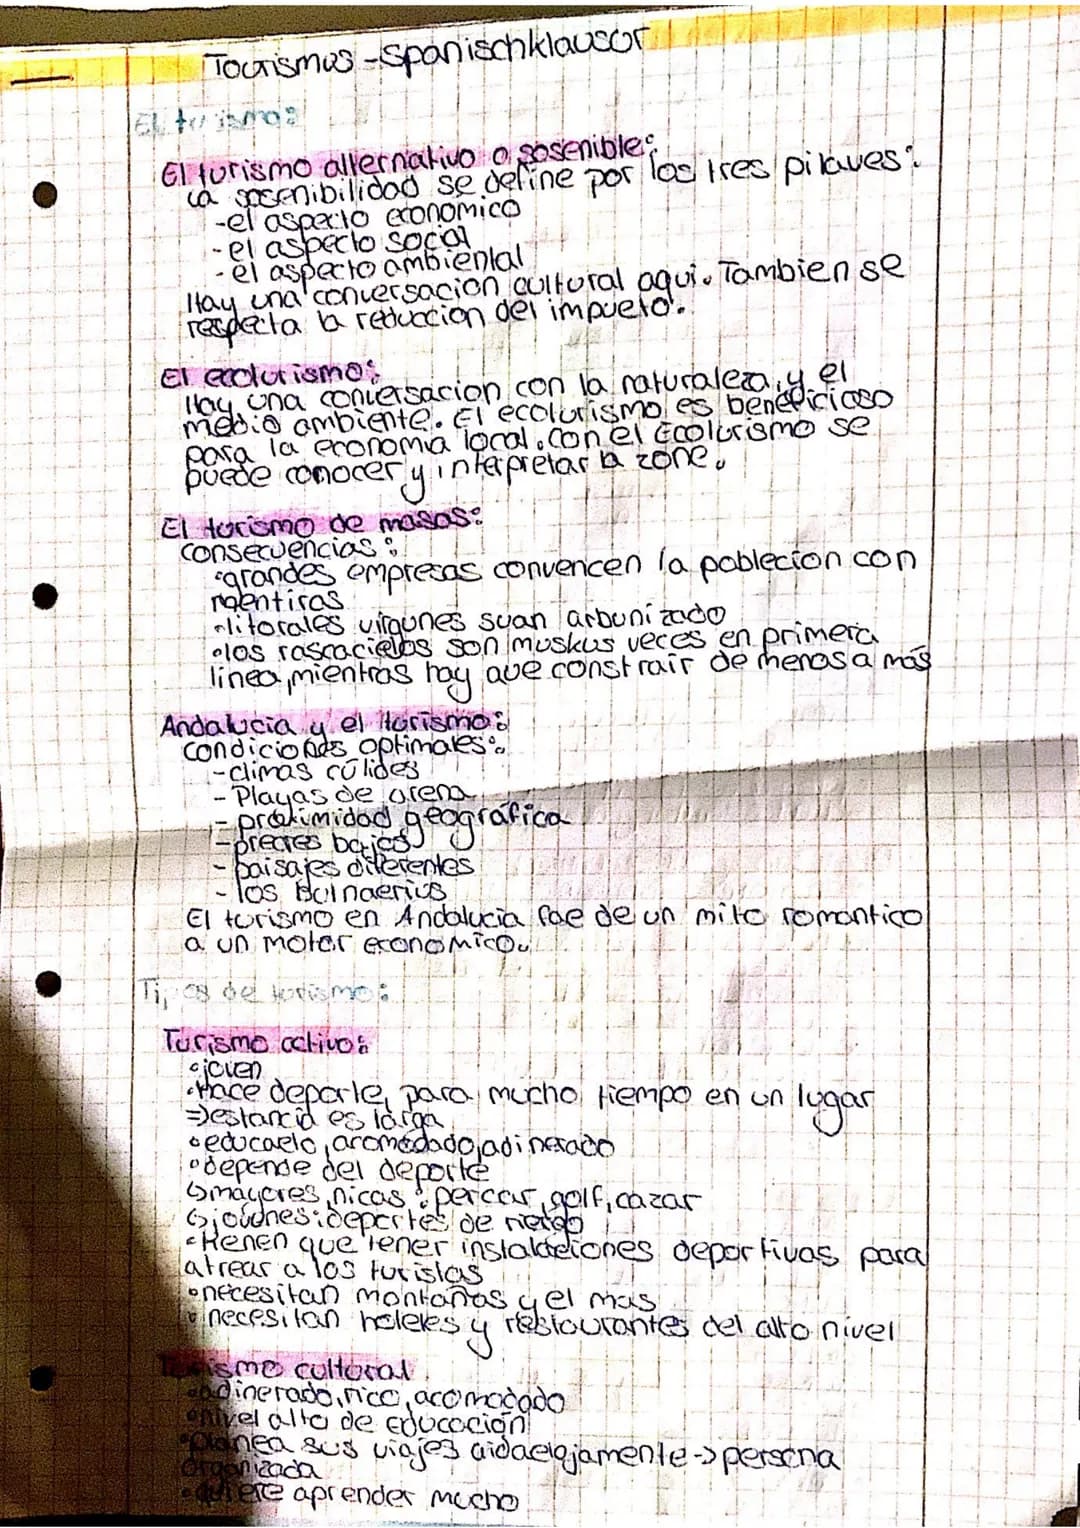 Tourismus - Spanischklausur
El turismo:
El turismo alternativo o sosenible:
La sosenibilidad se define por los tres pilares:
-el aspecto economico
-el aspecto social
-el aspecto ambiental
Hay una conversacion cultural aqui. Tambien se
respecta la reduccion del impueto.
El ecoturismo:
Hay una conversacion con la naturaleza y el
medio ambiente. El ecoturismo es beneficioso
para la economia local. con el Ecoturismo se
puede conocer y interpretar la zone.
El turismo de masas:
consecuencias:
•grandes empresas convencen la poblecion con
mentiras
•litorales virgunes suan arbunizado
•los rascacielos son muskus veces en primera
linea, mientras hay que constrair de menos a más
Andalucia y el turismo:
condiciones optimales:
-climas cúlides
-Playas de arena
-proximidad geográfica
-precres bajos
-paisajes diferentes
-los Balnaerius
El turismo en Andalucia fae de un mito romantico
a un motor economico.
Tipos de turismo:
Turismo activo:
•joven
•Hace deporte, para mucho tiempo en un lugar
=>estancia es larga
•educaelo, aromedado, adinerado
•depende del deporte
↳mayores, nicas: percar, golf, cazar
↳jovenes: deportes de rietgo
•tienen que tener instalaciones deportivas para
atrear a los turistas
•necesitan montañas y el mas
•necesitan hoteles y restourantes del alto nivel
Turismo cultural
•adinerado, rico, acomodado
•nivel alto de educación
•planea sus viajes -> persona
organizada
•quiere aprender mucho